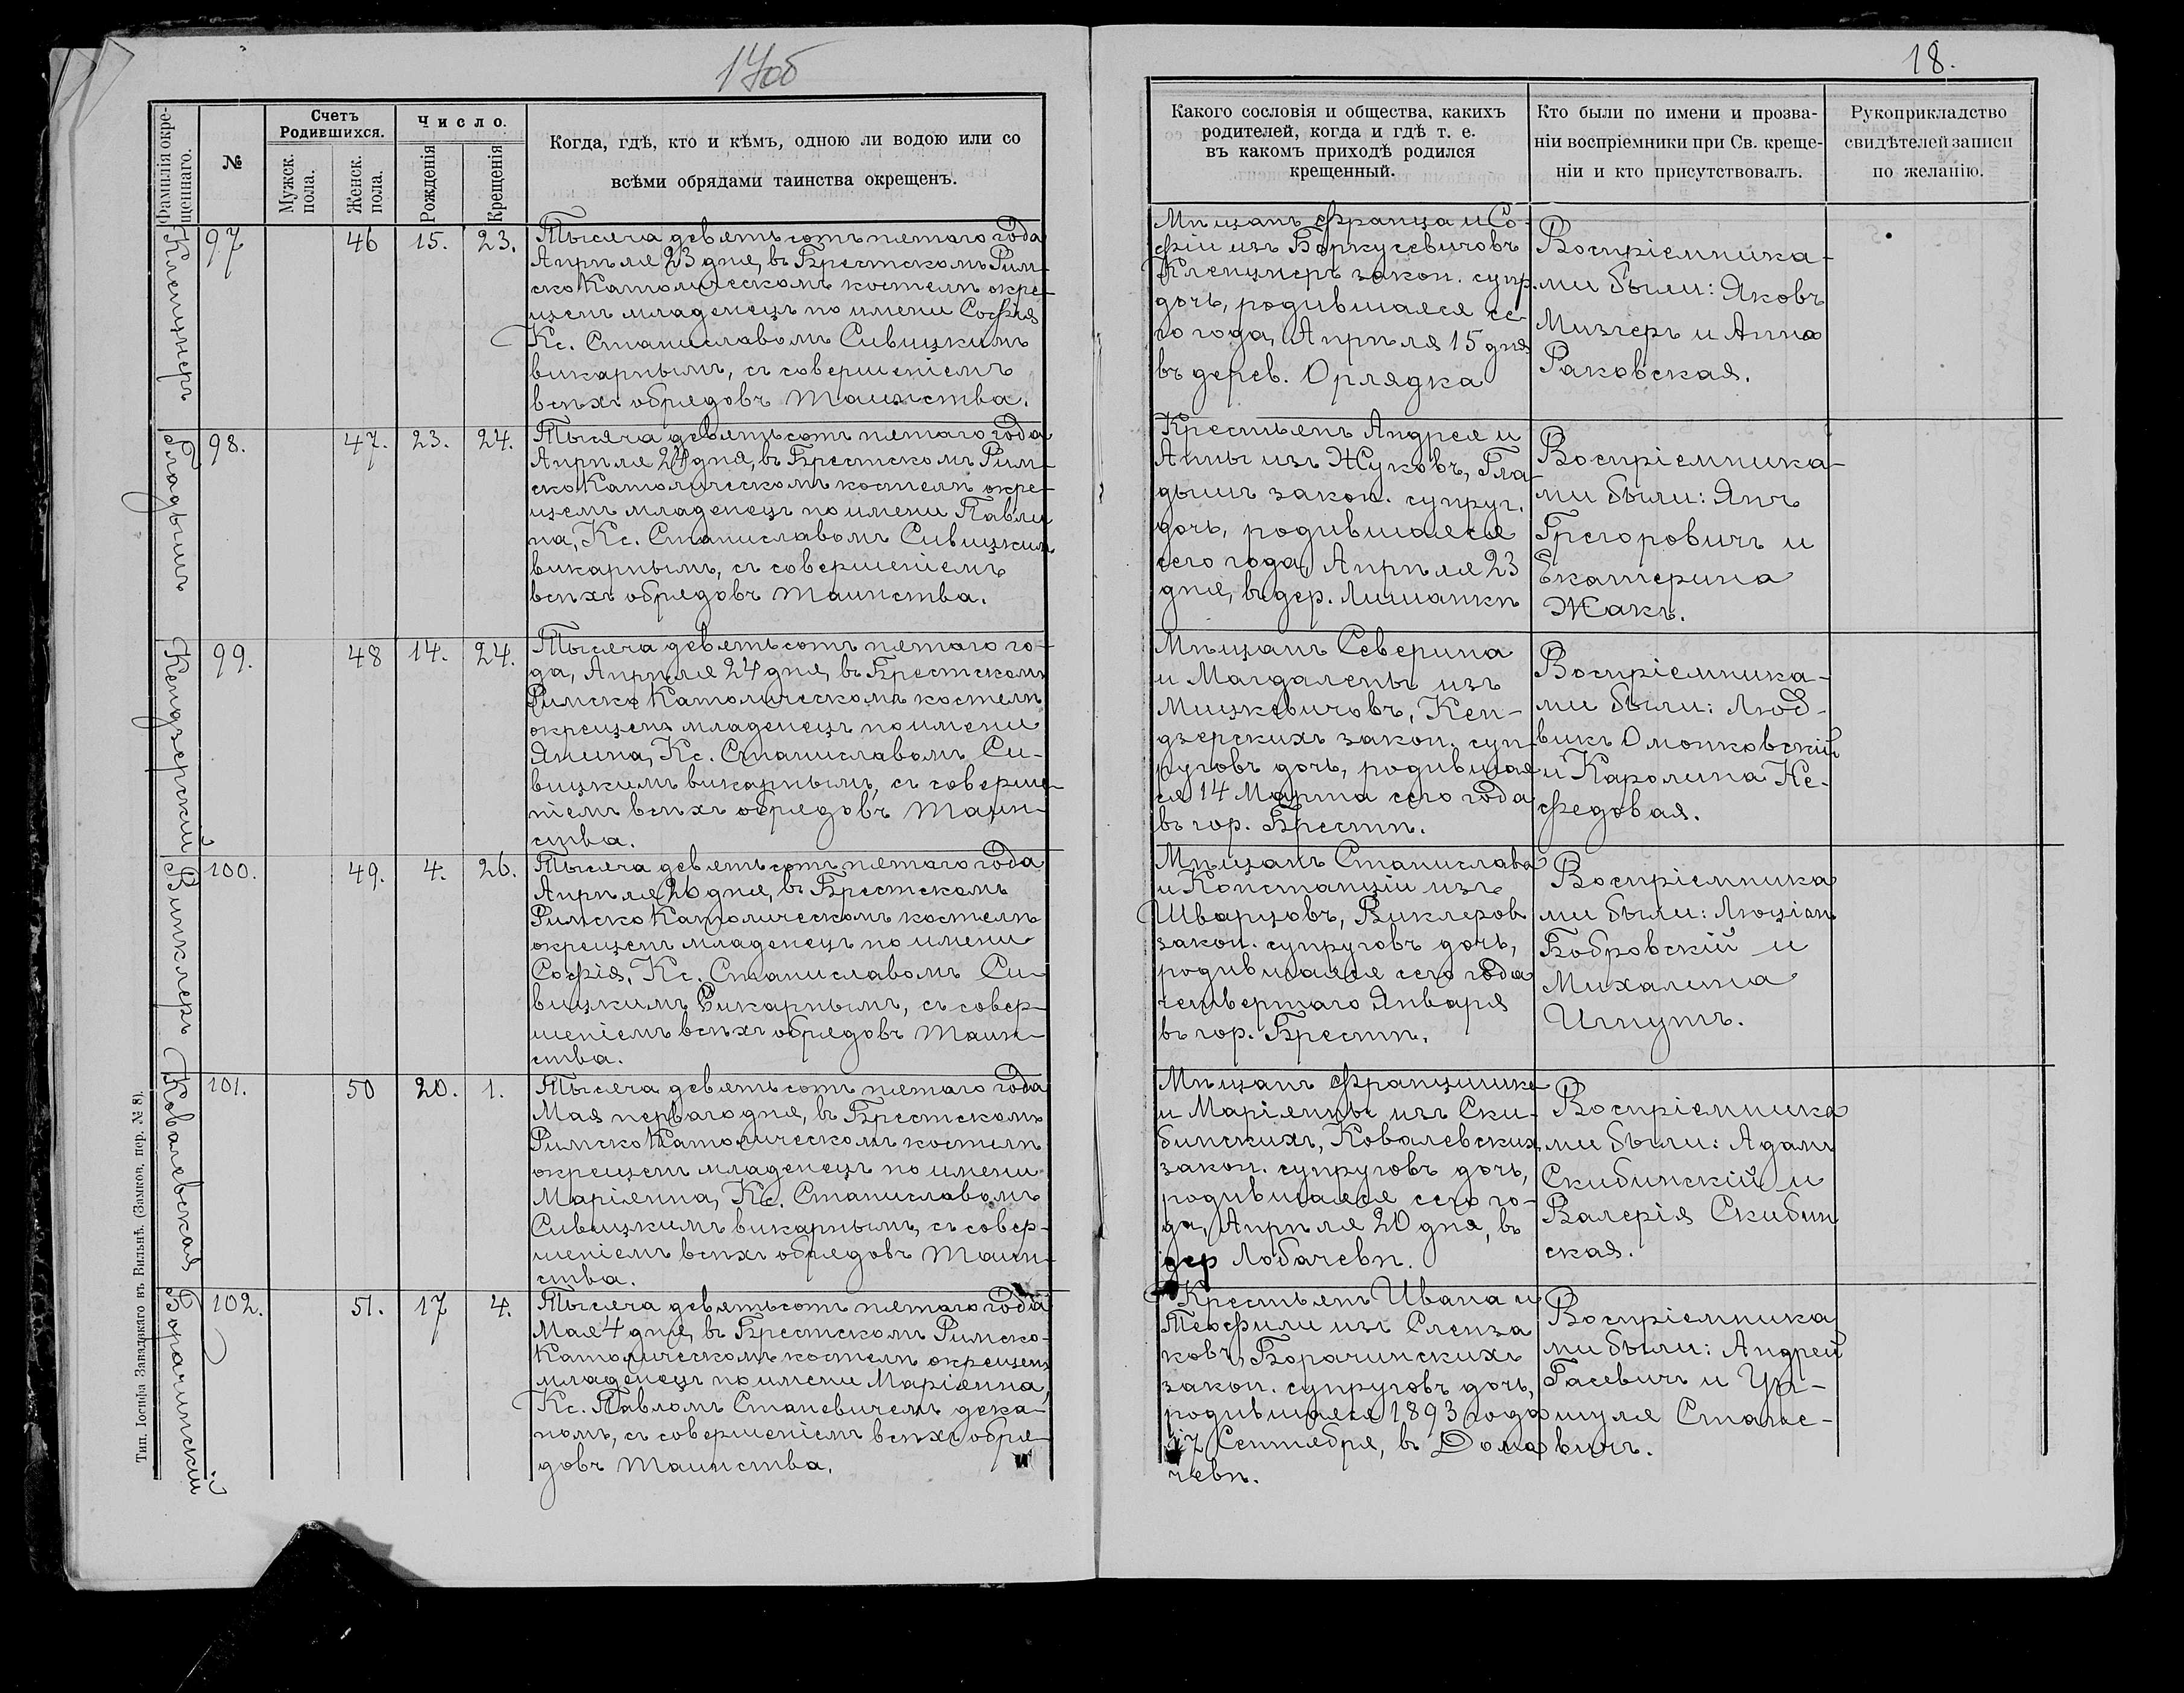 17об
18.
Фамилія окре-
щеннаго.
№
Счетъ
Родившихся.
Мужск.
пола.
Женск.
пола.
Число.
Рожденія
Крещенія
Когда, гдѣ, кто и кѣмъ, одною ли водою или со
всѣми обрядами таинства окрещенъ.
Какого сословія и общества, какихъ
родителей, когда и гдѣ т. е.
въ какомъ приходѣ родился
крещенный.
Кто были по имени и прозва-
ніи воспріемники при Св. креще-
ніи и кто присутствовалъ.
Рукоприкладство
свидѣтелей записи
по желанію.
Клепцнеръ
97
46
15.
23.
Тысяча девятьсотъ пятаго года
Апрѣля 23 дня, въ Брестскомъ Рим-
ско Католическомъ костелѣ окре-
щенъ младенецъ по имени Софія
Кс. Станиславомъ Сивицкимъ
викарнымъ, съ совершеніемъ
всѣхъ обрядовъ таинства.
Мѣщанъ Франца и Со-
фіи изъ Боркусевичовъ
Клепцнеръ закон. супр.
дочь, родившаяся се-
го года, Апрѣля 15 дня
въ дерев. Орлядка
Воспріемника-
ми были: Яковъ
Мизгеръ и Анна
Раковская.
Гладышъ
98.
47.
23.
24.
Тысяча девятьсотъ пятаго года
Апрѣля 24 дня, въ Брестскомъ Рим-
ско Католическомъ костелѣ окре-
щенъ младенецъ по имени Павли
на, Кс. Станиславомъ Сивицкимъ
викарнымъ, съ совершеніемъ
всѣхъ обрядовъ таинства.
Крестьянъ Андрея и
Анны изъ Жуковъ, Гла-
дышъ закон. супруг.
дочь, родившаяся
сего года, Апрѣля 23
дня, въ дер. Лишанки
Воспріемника-
ми были: Янъ
Грегоровичъ и
Екатерина
Жакъ.
Кендзерскій
99.
48
14.
24.
Тысяча девятьсотъ пятаго го-
да, Апрѣля 24 дня, въ Брестскомъ
Римско Католическомъ костелѣ
окрещенъ младенецъ по имени
Янина, Кс. Станиславомъ Си-
вицкимъ викарнымъ, съ соверше-
ніемъ всѣхъ обрядовъ таин-
ства.
Мѣщанъ Северина
и Магдалены изъ
Мицкевичовъ, Кен-
дзерскихъ закон. суп-
руговъ дочь, родившая
ся 14 Марта сего года
въ гор. Брестѣ.
Воспріемника-
ми были: Люд-
викъ Омонковскій
и Каролина Не-
федовая.
Виклеръ
100.
49.
4.
26.
Тысяча девятьсотъ пятаго года
Апрѣля 26 дня, въ Брестскомъ
Римско Католическомъ костелѣ
окрещенъ младенецъ по имени
Софія, Кс. Станиславомъ Си-
вицкимъ Викарнымъ, съ совер-
шеніемъ всѣхъ обрядовъ таин-
ства.
Мѣщанъ Станислава
и Констанціи изъ
Шварцовъ, Виклеров
закон. супруговъ дочь,
родившаяся сего года
четвертаго Января
въ гор. Брестѣ.
Воспріемника
ми были: Люціанъ
Бобровскій и
Михалина
Игнутъ.
Ковалевская
101.
50
20.
1.
Тысяча девятьсотъ пятаго года
Мая перваго дня, въ Брестскомъ
Римско Католическомъ костелѣ
окрещенъ младенецъ по имени
Маріянна, Кс. Станиславомъ
Сивицкимъ викарнымъ, съ совер-
шеніемъ всѣхъ обрядовъ таин-
ства.
Мѣщанъ Францишка
и Маріянны изъ Ски-
бинскихъ, Ковалевских
закон. супруговъ дочь,
родившаяся сего го-
да, Апрѣля 20 дня, въ
дер Лобачевѣ.
Воспріемника
ми были: Адамъ
Скибинскій и
Валерія Скибин
ская.
Борачинскій
102.
51.
17
4.
Тысяча девятьсотъ пятаго года
Мая 4 дня, въ Брестскомъ Римско-
Католическомъ костелѣ окрещенъ
младенецъ по имени Маріянна,
Кс. Павломъ Станевичемъ дека-
номъ, съ совершеніемъ всѣхъ обря
довъ таинства.
Крестьянъ Ивана и
Теофили изъ Сленза
ковъ, Борачинскихъ
закон. супруговъ дочь,
родившаяся 1893 года
17 Сентября, въ Дома
чевѣ.
Воспріемника
ми были: Андрей
Гасевичъ и Ур-
шуля Стане-
вичъ.
Тип. Іосифа Завадзкаго въ Вильнѣ. (Замков. пер. № 8).